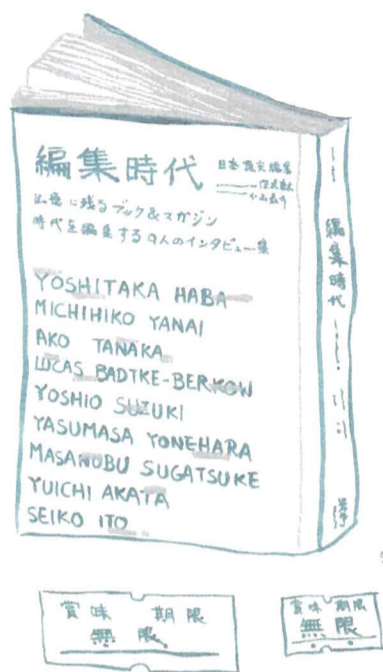 編集時代
記憶に残るブック&マガジン
時代を編集する9人のインタビュー集
YOSHITAKA HABA
MICHIHIKO YANAI
AKO TANAKA
LUCAS BADTKE-BERKOW
YOSHIO SUZUKI
YASUMASA YONEHARA
MASANOBU SUGATSUKE
YUICHI AKATA
SEIKO ITO
編集時代
賞味期限
無限
賞味期限
無限